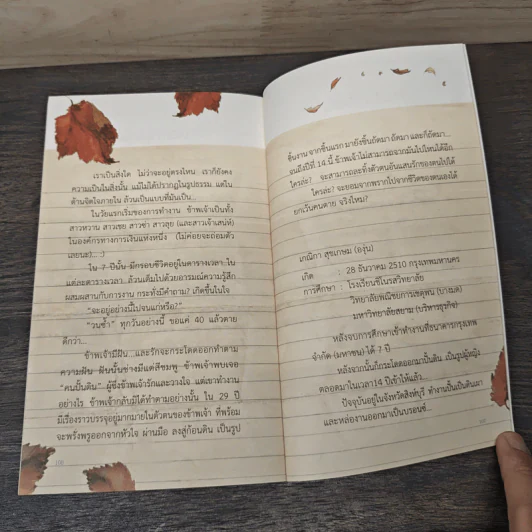 เราเป็นสิ่งใด ไม่ว่าจะอยู่ตรงไหน เราก็ยังคง
ความเป็นในสิ่งนั้น แม้ไม่ได้ปรากฏในรูปธรรม แต่ใน
ด้านจิตใจภายใน ล้วนเป็นแบบที่มันเป็น...
ในวัยแรกเริ่มของการทำงาน ข้าพเจ้าเป็นทั้ง
สาวหวาน สาวเซย สาวซ่า สาวลุย (และสาวเจ้าเสน่ห์)
ในองค์กรทางการเงินแห่งหนึ่ง (ไม่ค่อยจะถ่อมตัว
เลยนะ)....:)
ใน 7 ปีนั้น มีกรอบชีวิตอยู่ในตารางเวลา ใน
แต่ละตารางเวลา ล้วนเต็มไปด้วยอารมณ์ความรู้สึก
ผสมผสานกับการงาน กระทั่งมีคำถาม? เกิดขึ้นในใจ
“จะอยู่อย่างนี้ไปจนแก่หรือ?”
“วนซ้ำ” ทุกวันอย่างนี้ ขอแค่ 40 แล้วตาย
ดีกว่า...
ข้าพเจ้ามีฝัน...และรักจะกระโดดออกทำตาม
ความฝัน ฝันนั้นช่างมีแต่สีชมพู ข้าพเจ้าพบเจอ
“คนปั้นดิน” ผู้ซึ่งข้าพเจ้ารักและวางใจ แต่เขาทำงาน
อย่างไร ข้าพเจ้ากลับมิได้ทำตามอย่างนั้น ใน 29 ปี
มีเรื่องราวบรรจุอยู่มากมายในตัวตนของข้าพเจ้า ที่พร้อม
จะพรั่งพรูออกจากหัวใจ ผ่านมือ ลงสู่ก้อนดิน เป็นรูป
ชิ้นงาน จากชิ้นแรก มายังชิ้นถัดมา ถัดมา และก็ถัดมา...
จนถึงปีที่ 14 นี้ ข้าพเจ้าไม่สามารถจากมันไปไหนได้อีก
ใครล่ะ? จะสามารถละทิ้งตัวตนอันแสนรักของตนไปได้
ใครล่ะ? จะยอมจากพรากไปจากชีวิตของตนเองได้
ยกเว้นคนตาย จริงไหม?
เกณิกา สุขเกษม (องุ่น)
เกิด : 28 ธันวาคม 2510 กรุงเทพมหานคร
การศึกษา : โรงเรียนชิโนรสวิทยาลัย
วิทยาลัยพณิชยการเชตุพน (บ่ายมด)
มหาวิทยาลัยสยาม (บริหารธุรกิจ)
หลังจบการศึกษาเข้าทำงานที่ธนาคารกรุงเทพ
จำกัด (มหาชน) ได้ 7 ปี
หลังจากนั้นก็กระโดดออกมาปั้นดิน เป็นรูปผู้หญิง
ตลอดมาในเวลา 14 ปีเข้าให้แล้ว
ปัจจุบันอยู่ในจังหวัดสิงห์บุรี ทำงานปั้นเป็นดินเผา
และหล่องานออกมาเป็นบรอนซ์...